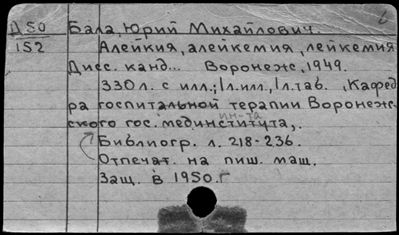 Д50 Бала, Юрий Михайлович.
152 Алейкия, алейкемия, лейкемия
Дисс. канд... Воронеж, 1949.
330л. с илл.; 1л.илл., 1л.таб. (Кафед
ра госпитальной терапии Воронеж-
ин-та
ского гос. мединститута,.
Библиогр. л. 218-236.
Отпечат. на пиш. маш.
Защ. в 1950.г